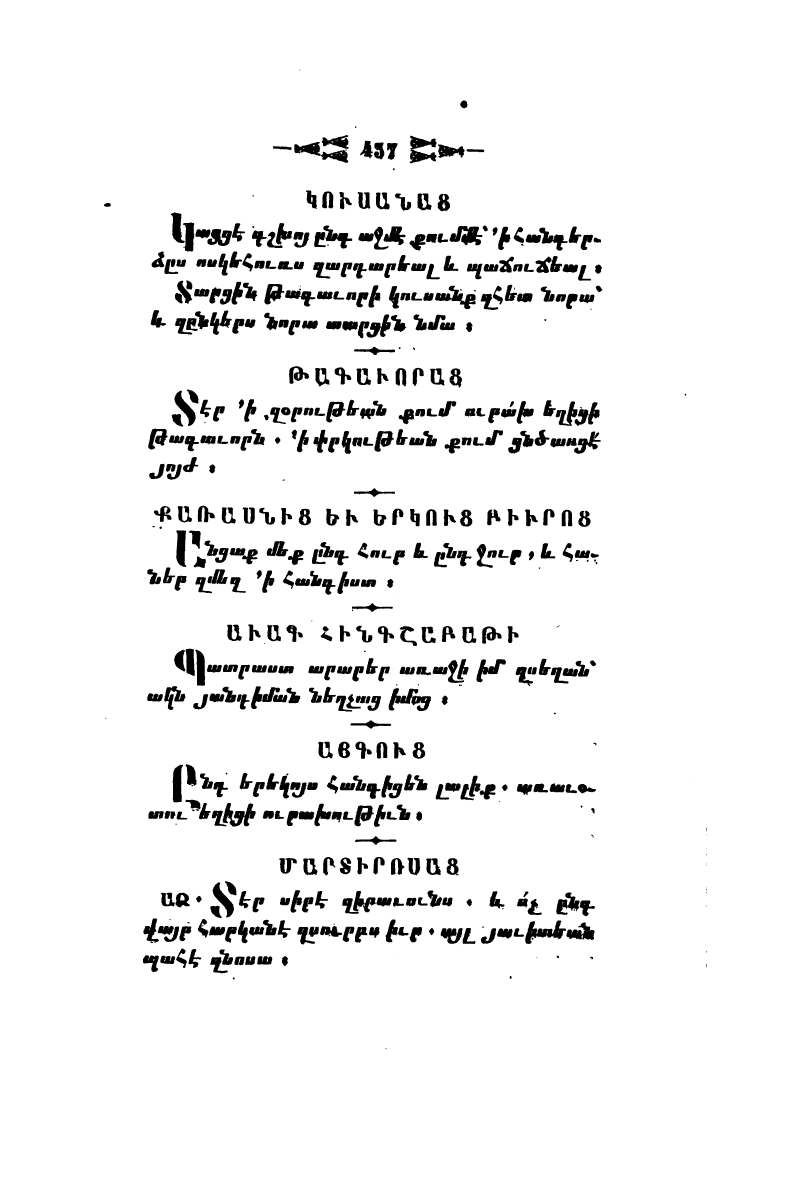 437
ԿՈՒՍԱՆԱՑ
Կացցէ դշխոյ ընդ աջմէ քումմէ՝ ՚ի հանդեր֊
ձըս ոսկեհուռս զարդարեալ և պաճուճեալ ։
Տարցին Թագաւորի կուսանք զհետ նորա՝
և զընկերս նորա տարցին նմա ։
ԹԱԳԱՒՈՐԱՑ
Տէր ՚ի զօրութեան քում ուրախ եղիցի
Թագաւորն . ՚ի փրկութեան քում ցնծասցէ
յոյժ ։
ՔԱՌԱՍՆԻՑ ԵՒ ԵՐԿՈՒՑ ԲԻՒՐՈՑ
Ընցաք մեք ընդ հուր և ընդ ջուր , և հա֊
ներ զմեզ ՚ի հանգիստ ։
ԱՒԱԳ ՀԻՆԳՇԱԲԱԹԻ
Պատրաստ արարեր առաջի իմ զսեղան՝
ակն յանդիման նեղչաց իմոց ։
ԱՅԳՈՒՑ
Ընդ երեկոյս հանգիցեն լալիք . առաւօ֊
տու՝ եղիցի ուրախութիւն ։
ՄԱՐՏԻՐՈՍԱՑ
ԱՁ . Տէր սիրէ զիրաւունս . և ո՛չ ընդ
վայր հարկանէ զսուրբս իւր . այլ յաւիտեան
պահէ զնոսա ։